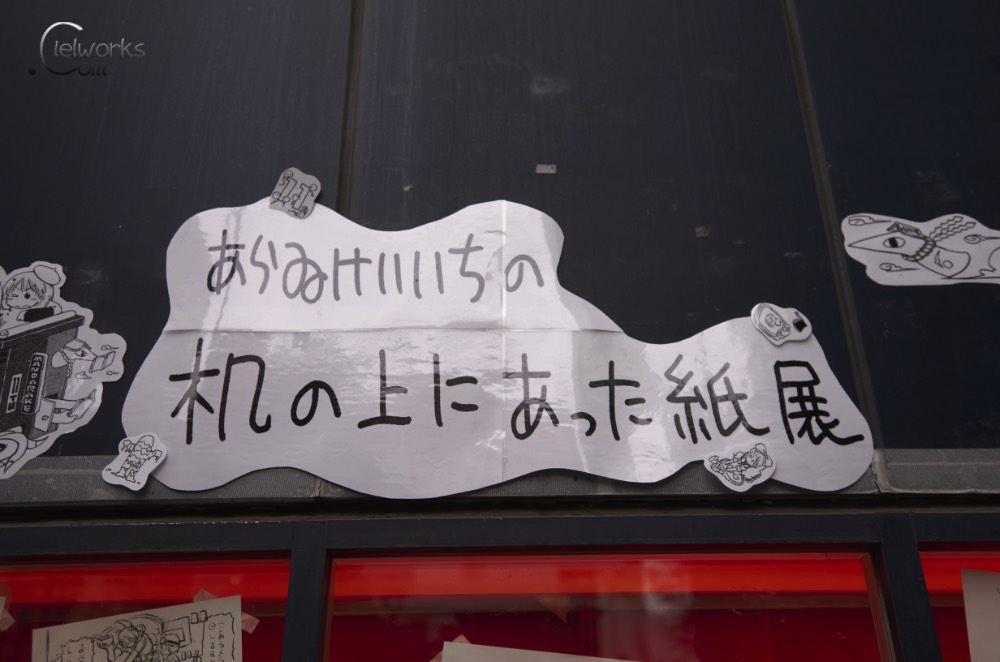 Cielworks
.Com
あらゐけいいちの
机の上にあった紙展